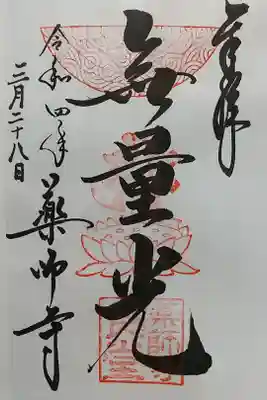 奉拝
無量光
令和四年
三月二十八日
薬師寺